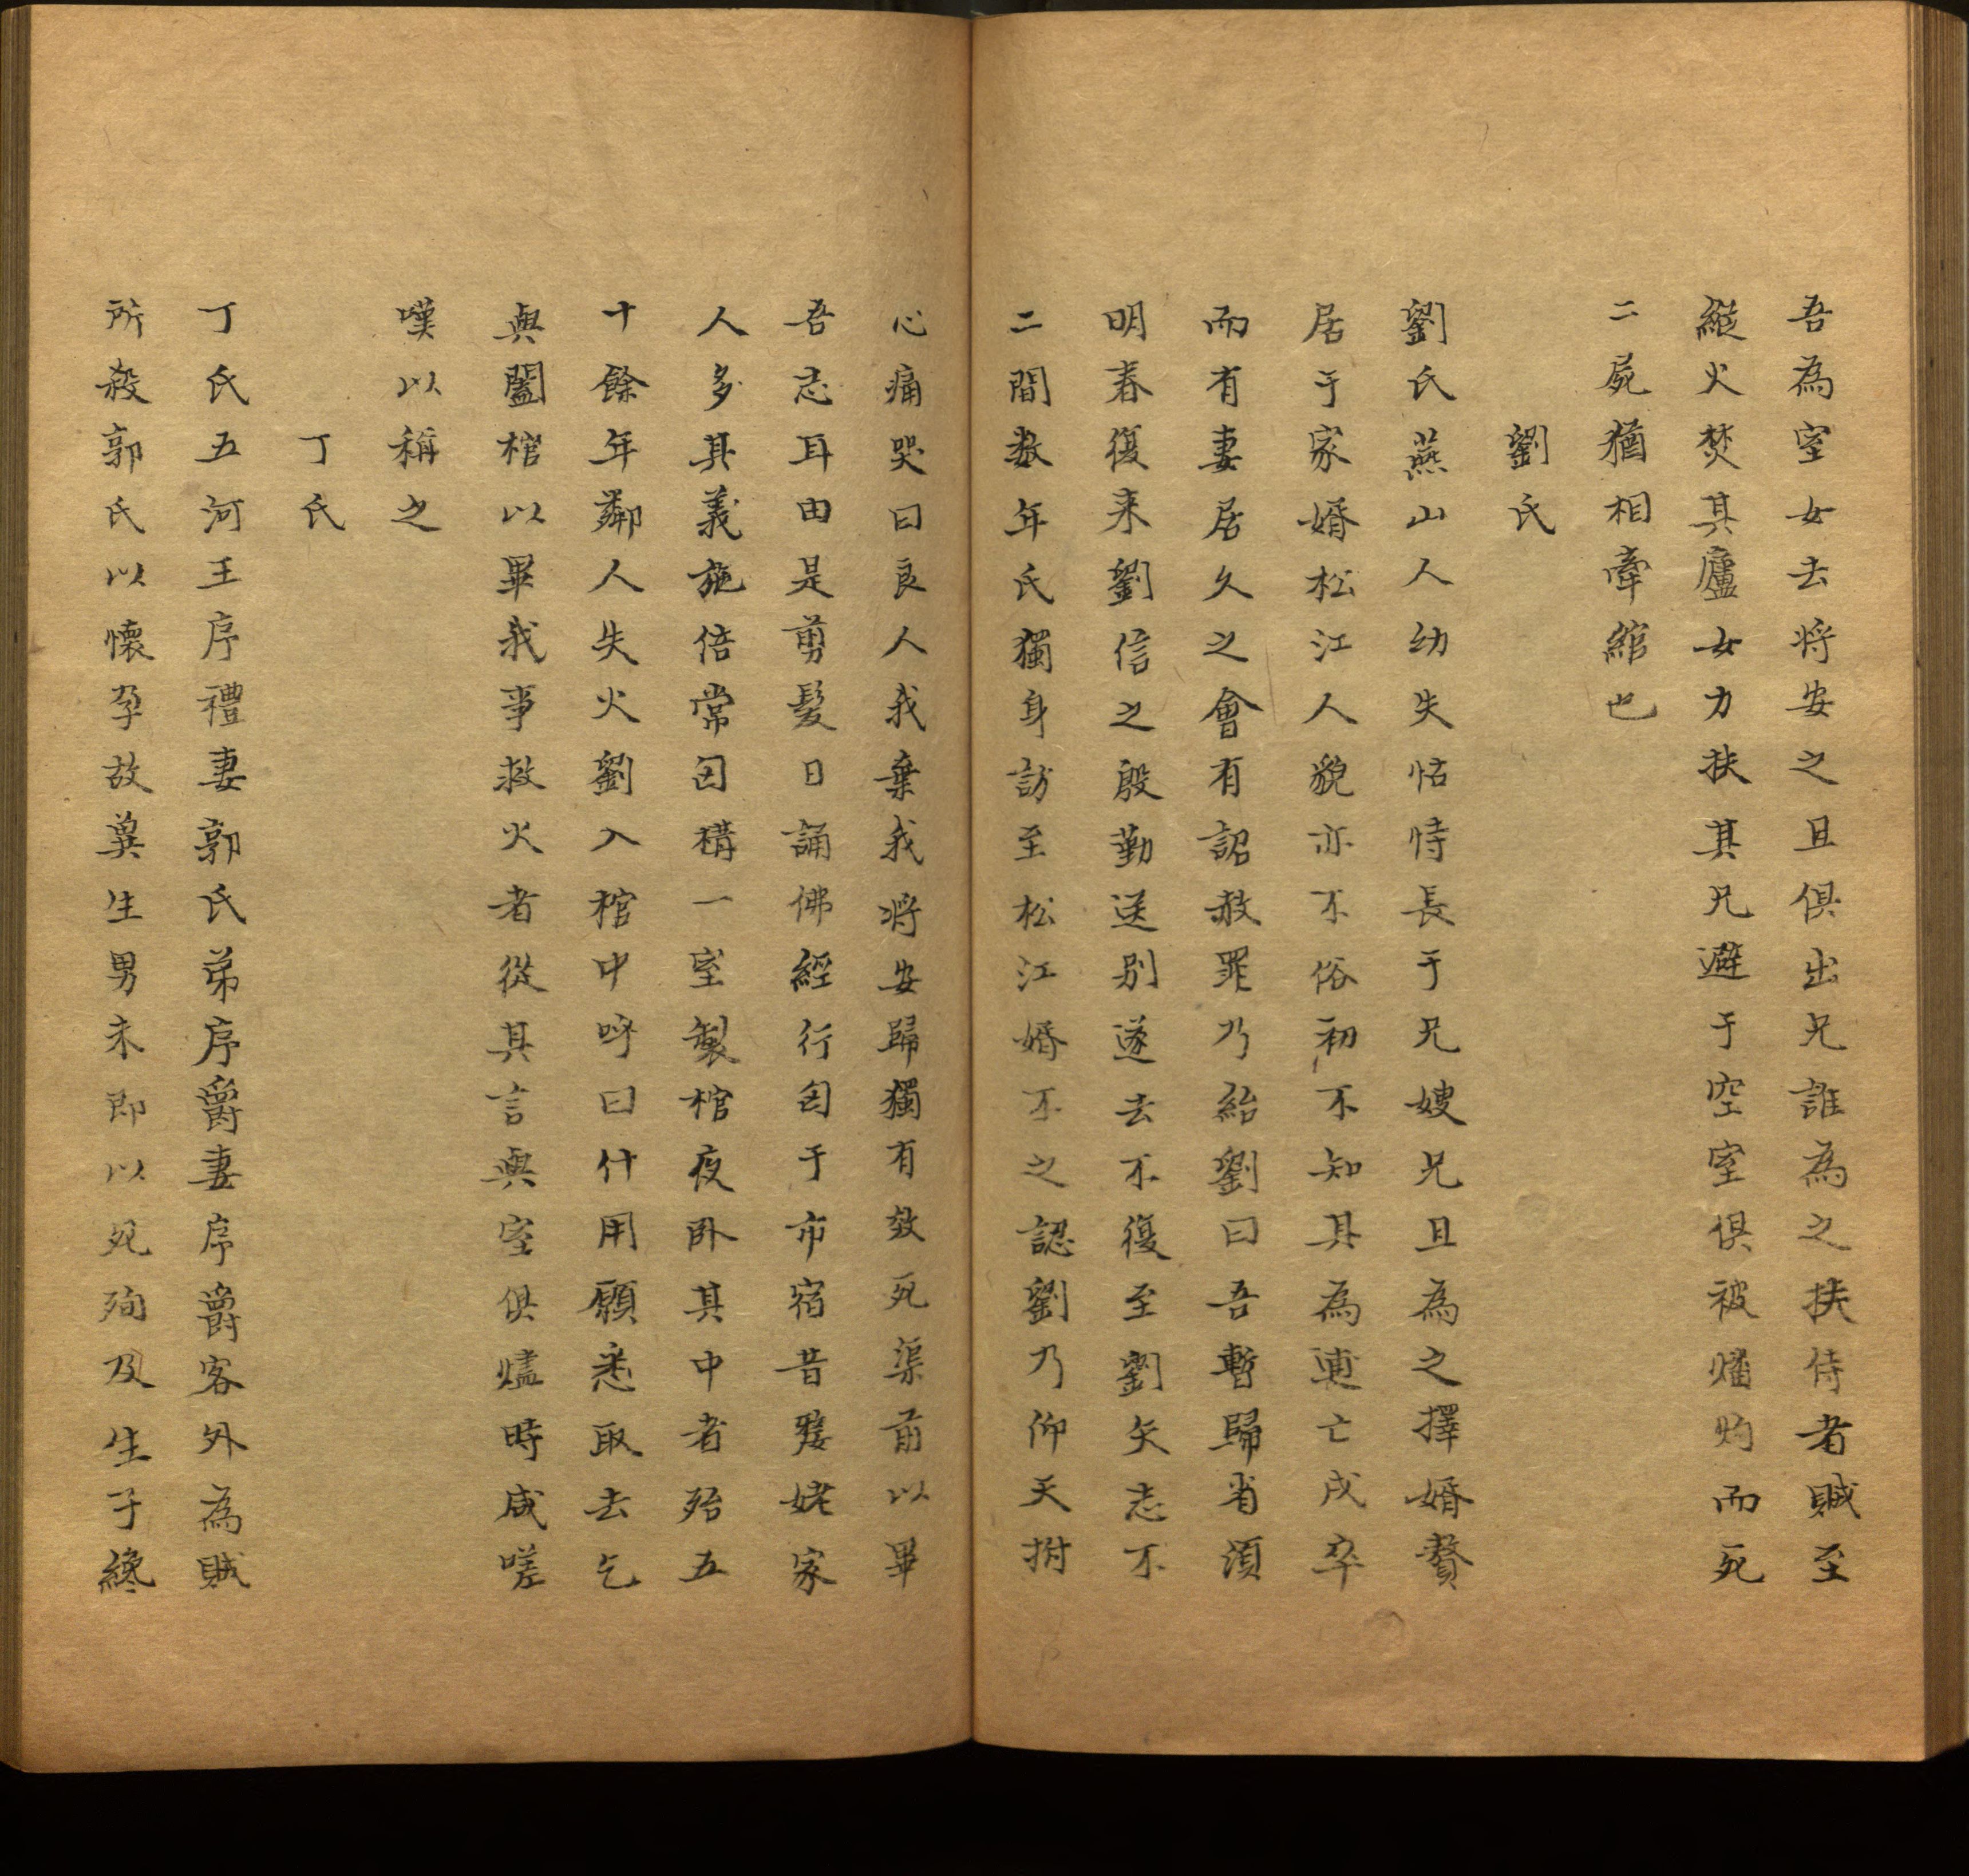 吾為室女去将安之且俱出兄誰為之扶侍者賊至
縱火焚其廬女力扶其兄避于空室俱被燔灼而死
二屍猶相牽綰也
劉氏
劉氏燕山人幼失怙恃長于兄嫂兄且為之擇婿贅
居于家婿松江人貌亦不俗初不知其為逋亡戍卒
而有妻居久之會有詔赦罪乃紿劉曰吾暫歸省湏
明春復来劉信之殷勤送别遂去不復至劉矢志不
二間数年氏獨身訪至松江婿不之認劉乃仰天拊
心痛哭曰良人我棄我将安歸獨有效死渠前以畢
吾志耳由是剪髮日誦佛經行匄于市宿昔嫠姥家
人多其義施倍常因構一室製棺夜卧其中者殆五
十餘年鄰人失火劉入棺中呼曰什用願悉取去乞
與闔棺以畢我事救火者從其言與室俱燼時咸嗟
嘆以稱之
丁氏
丁氏五河王序禮妻郭氏弟序爵妻序爵客外為賊
所殺郭氏以懷孕故兾生男未即以死殉及生子纔